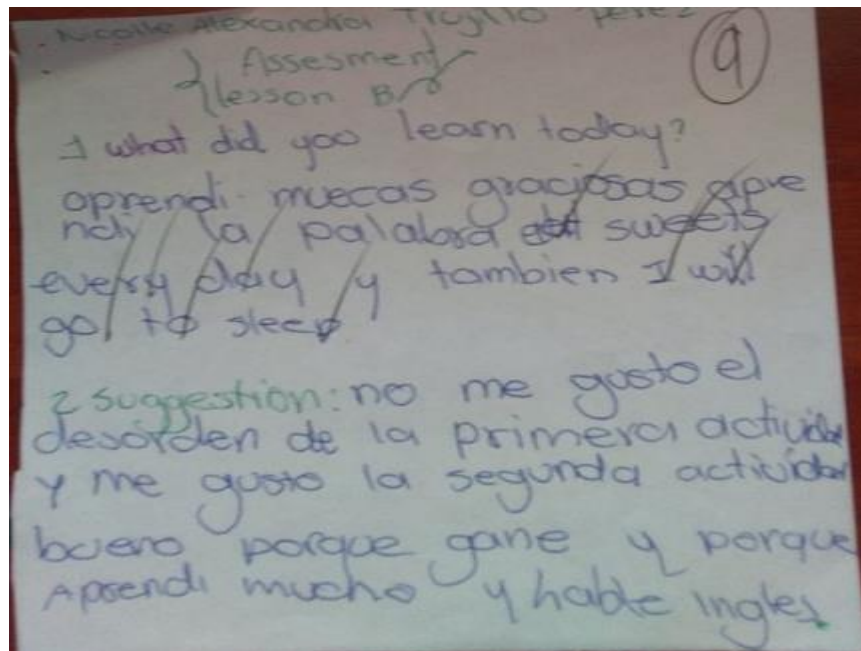 Nicolle Alexandra Trujillo Perez
Assesment
lesson B
9
1 what did you learn today?
aprendi muecas graciosas apre
ndi la palabra sweets
every day y tambien I will
go to sleep
2 suggestion: no me gusto el
desorden de la primera activida
y me gusto la segunda actividad
bueno porque gane y porque
Aprendi mucho y hable ingles